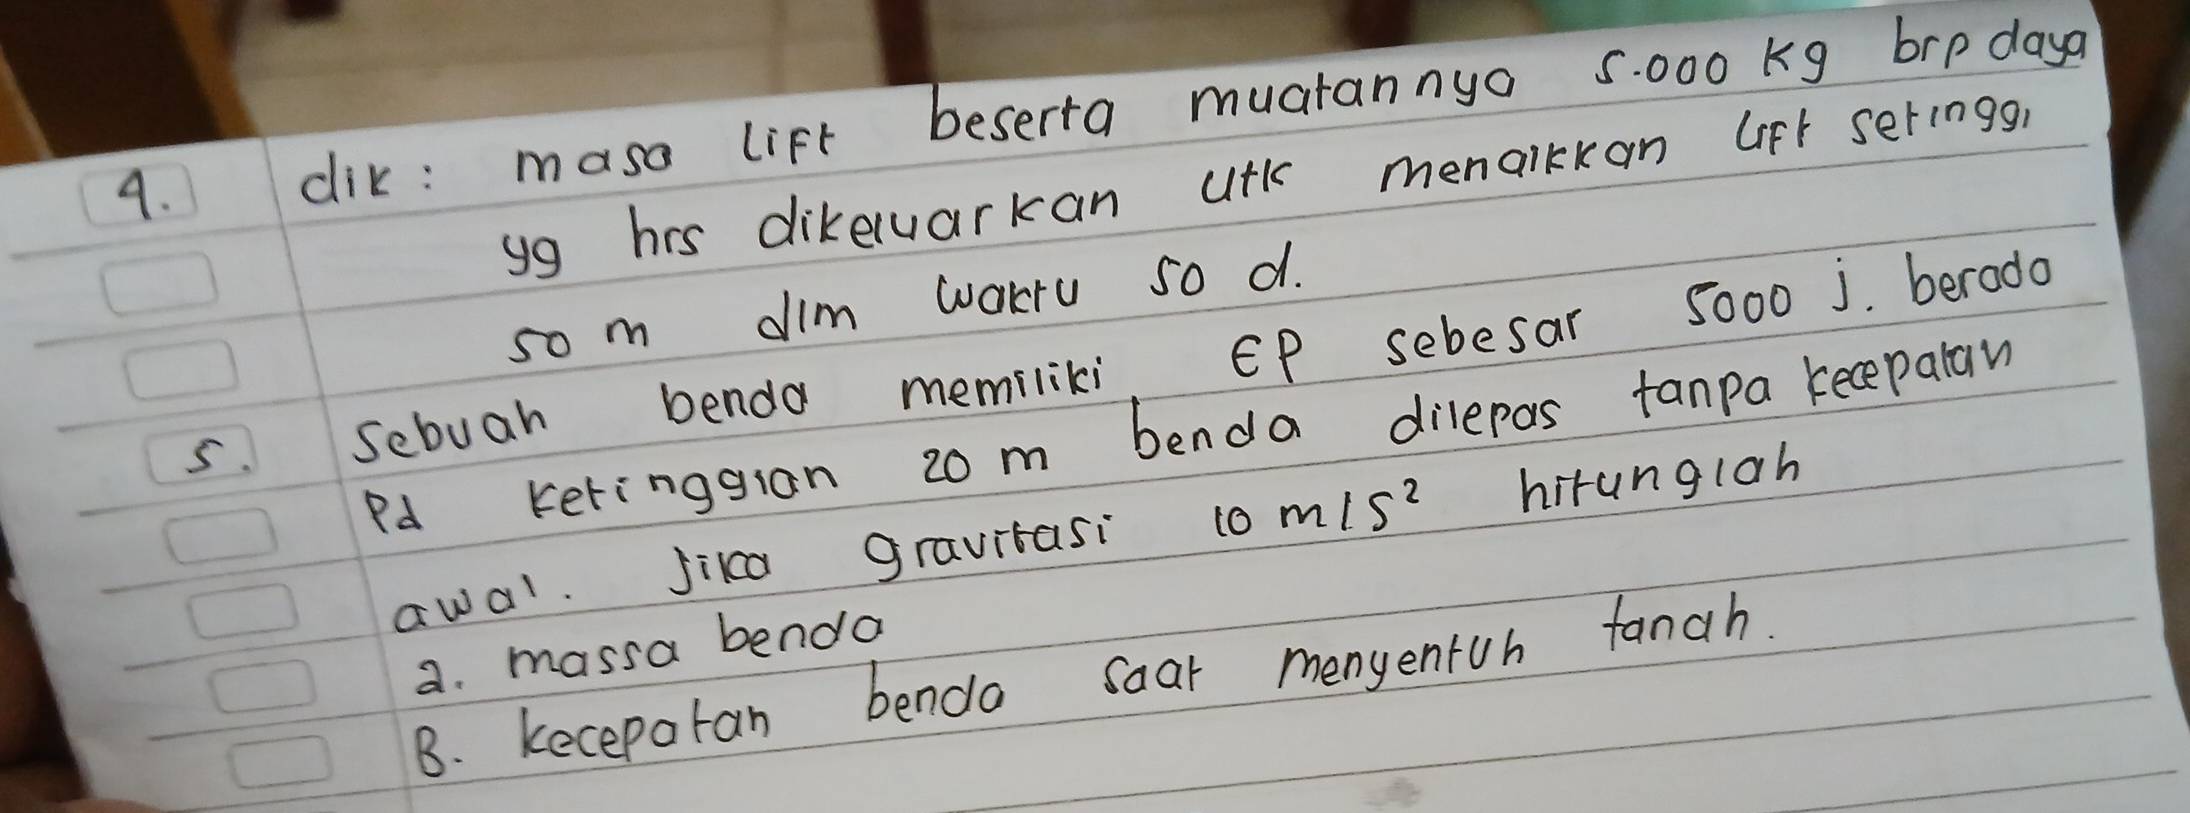 4. dik: masa lift beserta muatannya 5.000 kg brp daya
yg hrs dikeluarkan utk menaikkan lift setinggi
50 m dlm waktu 50 d.
5. Sebuah benda memiliki EP sebesar 5000 j. berada
Pd ketinggian 20 m benda dilepas tanpa kecepatan
awal. Jika gravitasi 10 m/s² hitunglah
a. massa benda
B. kecepatan benda saat menyentuh tanah.